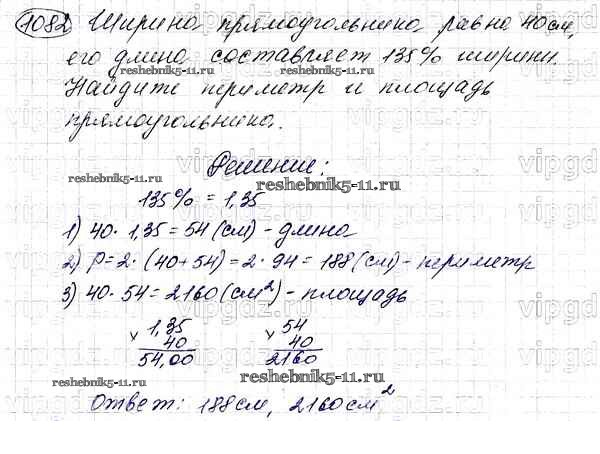 1082 Ширина прямоугольника равна 40 см,
его длина составляет 135% ширины.
Найдите периметр и площадь
прямоугольника.
Решение:
135% = 1,35
1) 40 · 1,35 = 54 (см) - длина
2) P = 2 · (40 + 54) = 2 · 94 = 188 (см) - периметр
3) 40 · 54 = 2160 (см²) - площадь
× 1,35 × 54
40 40
54,00 2160
Ответ: 188 см, 2160 см²
reshebnik5-11.ru
reshebnik5-11.ru
reshebnik5-11.ru
reshebnik5-11.ru
reshebnik5-11.ru
reshebnik5-11.ru